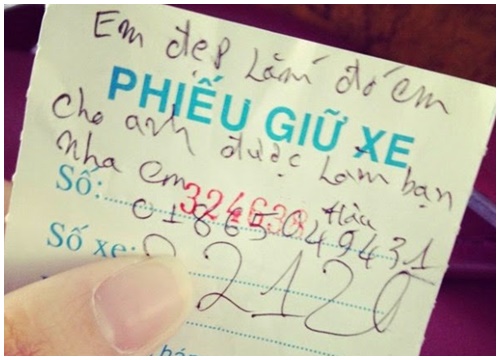 Em đẹp Lắm đó em
PHIẾU GIỮ XE
cho anh được Làm bạn
nha em
Hậu
Số: 324638
01865049431
Số xe: 2120